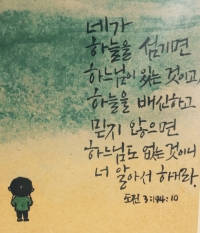 네가
하늘을 섬기면
하느님이 있는 것이고,
하늘을 배신하고
믿지 않으면
하느님도 없는 것이니
너 알아서 하게라.
도전 3:194:10